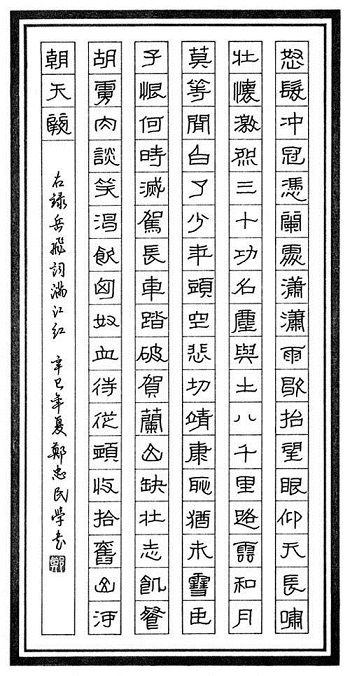 怒髮冲冠憑闌處瀟瀟雨歇抬望眼仰天長嘯
壯懷激烈三十功名塵與土八千里路雲和月
莫等閒白了少年頭空悲切靖康恥猶未雪臣
子恨何時滅駕長車踏破賀蘭山缺壯志飢餐
胡虜肉談笑渴飲匈奴血待從頭收拾舊山河
朝天闕
右録岳飛詞滿江紅 辛巳年夏鄭忠民學書
鄭